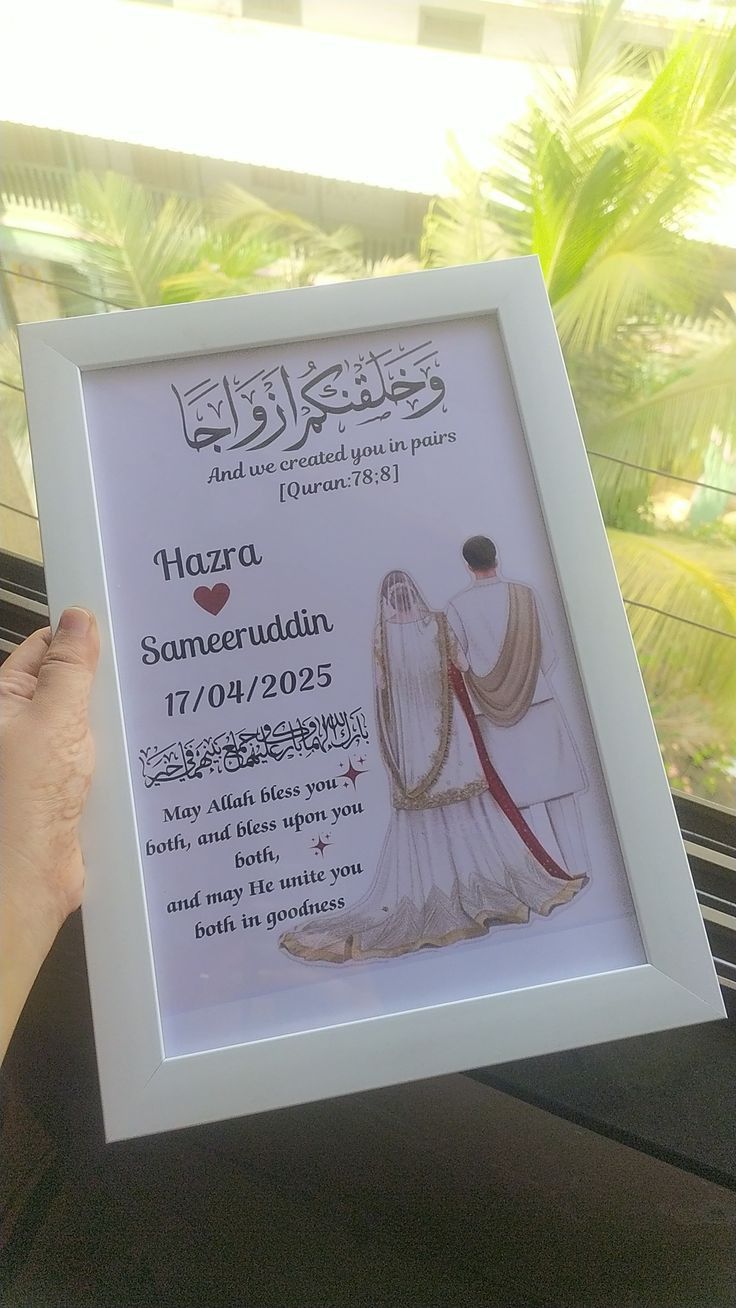 وَخَلَقْنَكُمْ أَزْوَاجًا
And we created you in pairs
[Quran:78;8]
Hazra
Sameeruddin
17/04/2025
بَارَكَ اللهُ لَهُمَا وَبَارَكَ عَلَيْهِمَا وَجَمَعَ بَيْنَهُمَا فِي خَيْرٍ
May Allah bless you
both, and bless upon you
both,
and may He unite you
both in goodness